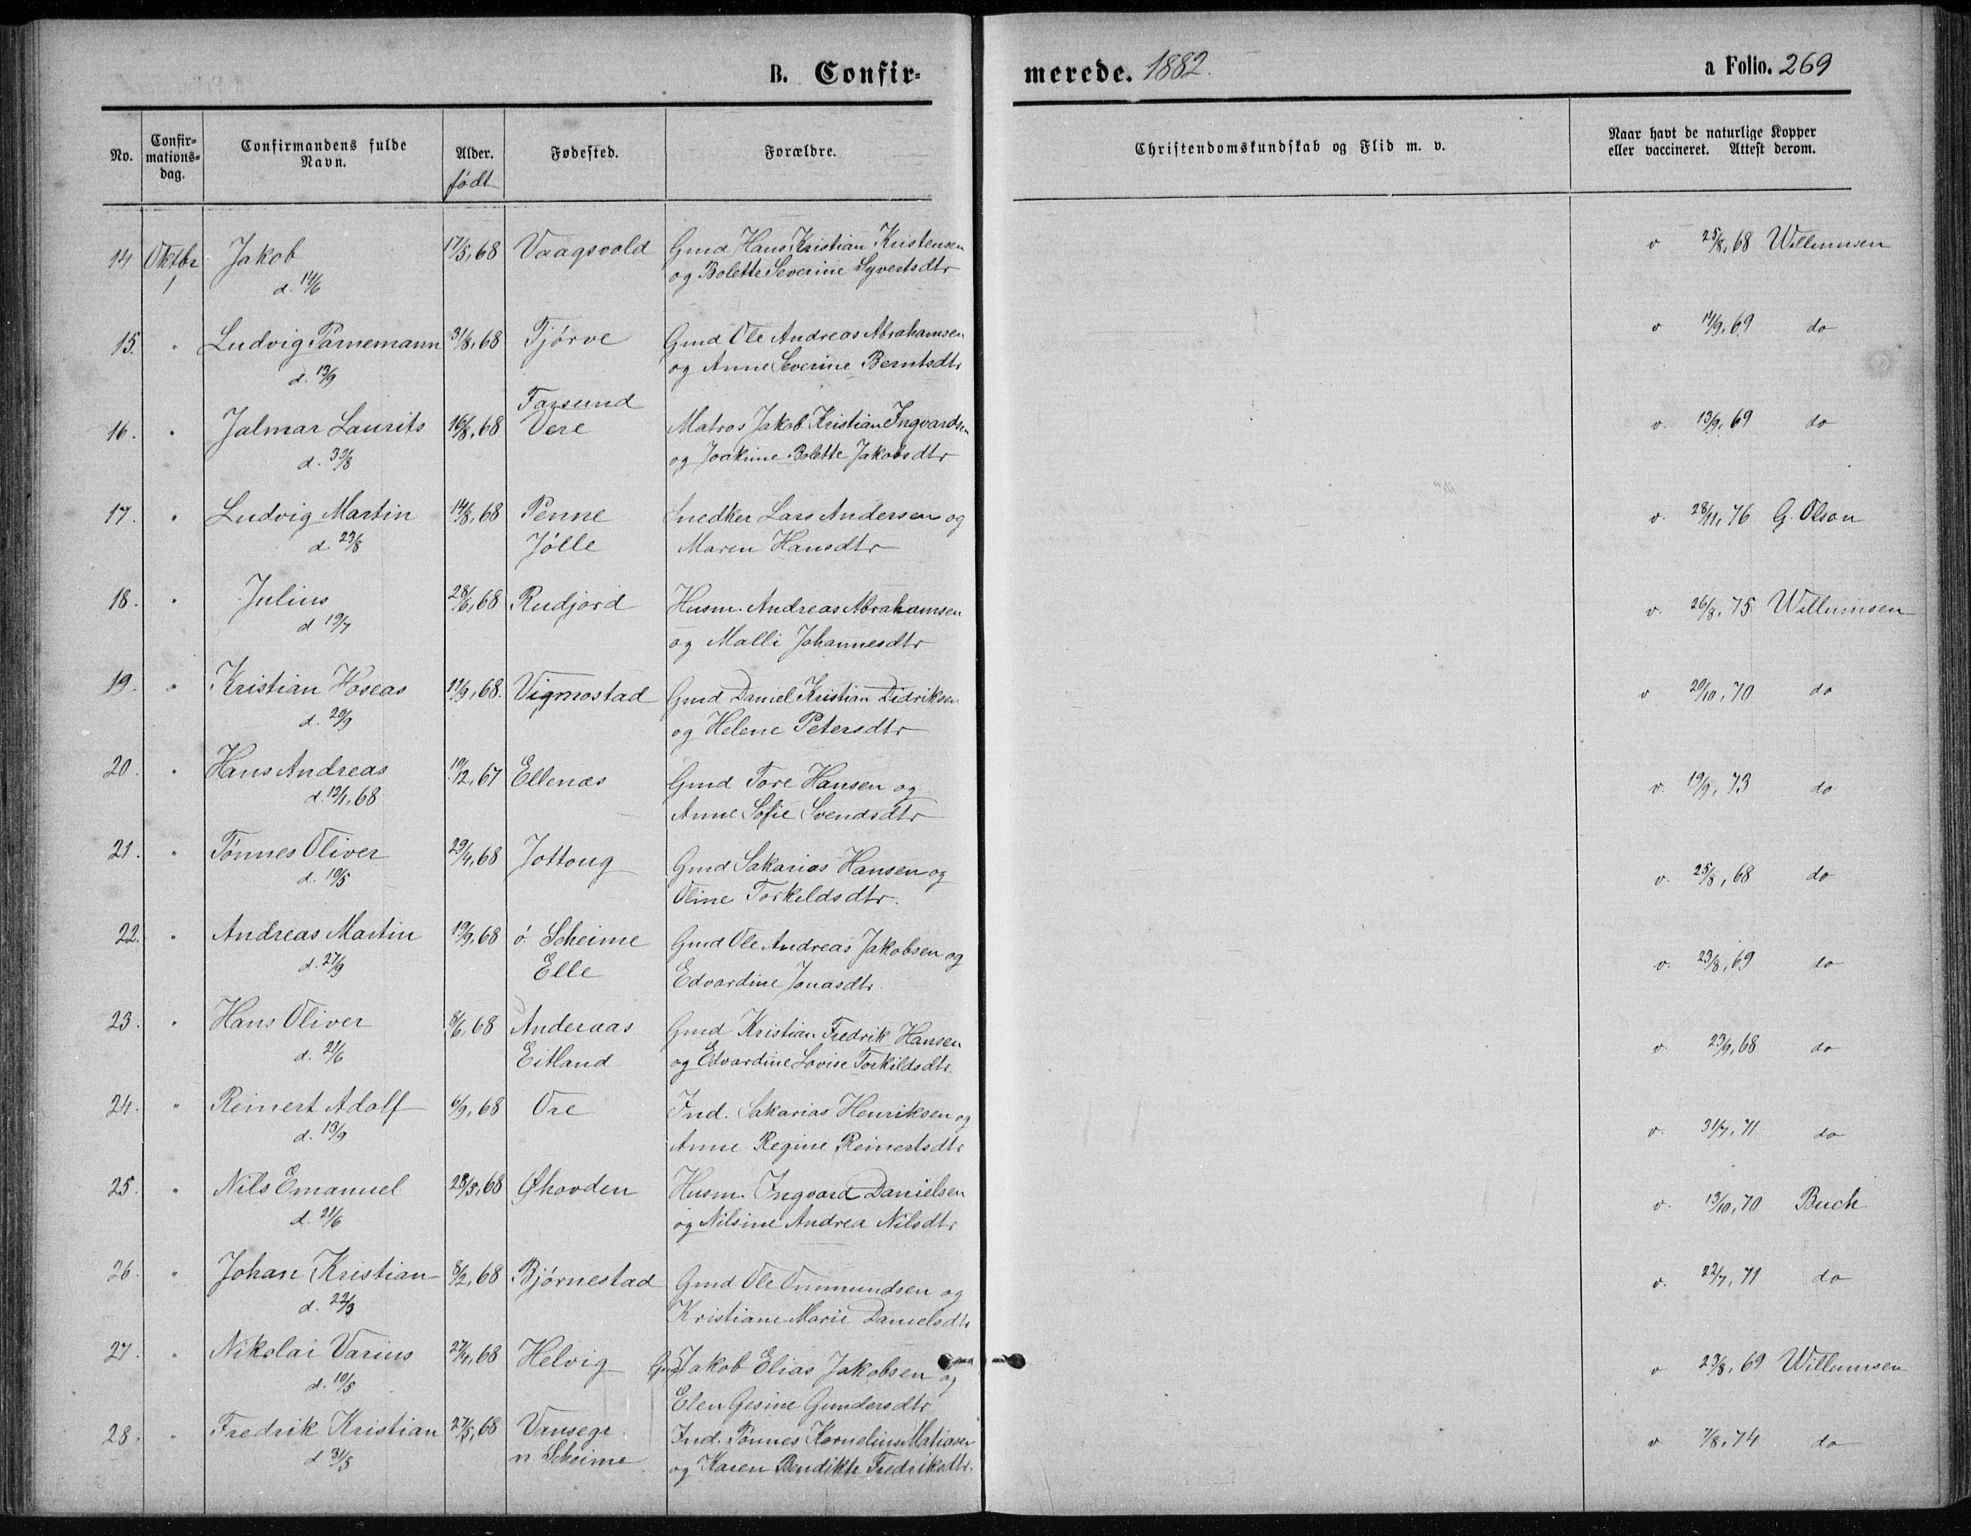 B. Confir-
merede. 1882.
a Folio. 269
No.
Confir-
mations-
dag.
Confirmandens fulde
Navn.
Alder.
født
Fødested.
Forældre.
Christendomskundskab og Flid m. v.
Naar havt de naturlige Kopper
eller vaccineret. Attest derom.
14 Oktbr Jakob 17/5, 68 Vaagsvold Gmd Hans Kristian Kristensen v 25/8, 68 Willumsen
1 d. 14/6 og Bolette Severine Syvertsdtr
15. " Ludvig Parnemann 31/8, 68 Tjørve Gmd Ole Andreas Abrahamsen v 14/9, 69 do
d. 13/9 og Anne Severine Berntsdtr
Farsund
16. " Jalmar Laurits 16/8, 68 Vere Matros Jakob Kristian Ingvardsen v. 13/9, 69 do
d. 30/8 og Joakine Bolette Jakobsdtr
17. " Ludvig Martin 14/8, 68 Penne Snedker Lars Andersen og v. 28/11, 76 G. Olson
d. 23/8 Jølle Maren Hansdtr
18. " Julius 28/6, 68 Rudjord Husm. Andreas Abrahamsen v. 26/8, 75 Willumsen
d 19/7 og Malli Johannesdtr
19. " Kristian Hoseas 17/9, 68. Vigmostad Gmd Daniel Kristian Didriksen v 20/10, 70 do
d. 20/9 og Helene Petersdtr
20. " Hans Andreas 19/12, 67 Ellenæs Gmd Tore Hansen og v. 19/9, 73 do
d. 12/1, 68 Anne Sofie Svendsdtr
21. " Tønnes Oliver 29/4, 68 Jottoug Gmd Sakarias Hansen og v. 25/8, 68 do
d. 10/5 Oline Torkildsdtr.
22. " Andreas Martin 19/9, 68 ø. Skeime Gmd Ole Andreas Jakobsen og v. 23/8, 69 do
d. 27/9 Elle Edvardine Jonasdtr.
23. " Hans Oliver 8/6, 68 Anderaas Gmd Kristian Fredrik Hansen v. 23/9, 68 do
d. 21/6 Eitland og Edvardine Lovise Torkildsdtr.
24. " Reinert Adolf 6/9, 68 Ore Ind. Sakarias Henriksen og v. 31/7, 71 do
d. 13/9 Anne Regine Reinertsdtr
25. " Nils Emanuel 28/5, 68 Øhovden Husm. Ingvard Danielsen v. 13/10, 70 Buch
d. 21/6 og Nilsine Andrea Nilsdtr
26. " Johan Kristian 8/2, 68 Bjørnestad Gmd Ole Ommundsen og v. 22/7, 71 do
d. 22/3 Kristiane Marie Danielsdtr
27. " Nikolai Varius 27/4, 68 Helvig Gmd Jakob Elias Jakobsen og v 23/8, 69 Willumsen
d. 10/5 Elen Gesine Gundersdtr
28. " Fredrik Kristian 27/5, 68 Vansegr. Ind. Tønnes Kornelius Matiasen v 7/8, 74 do
d 31/5 n Skeime og Karen Bendikte Fredriksdtr.